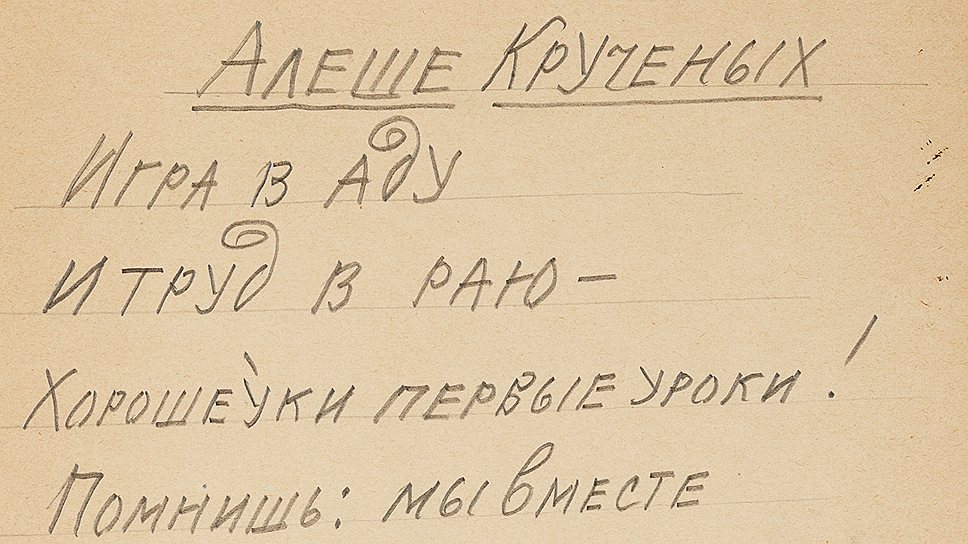 Алеше Крученых
Игра в аду
и труд в раю –
Хорошеуки первые уроки!
Помнишь: мы вместе